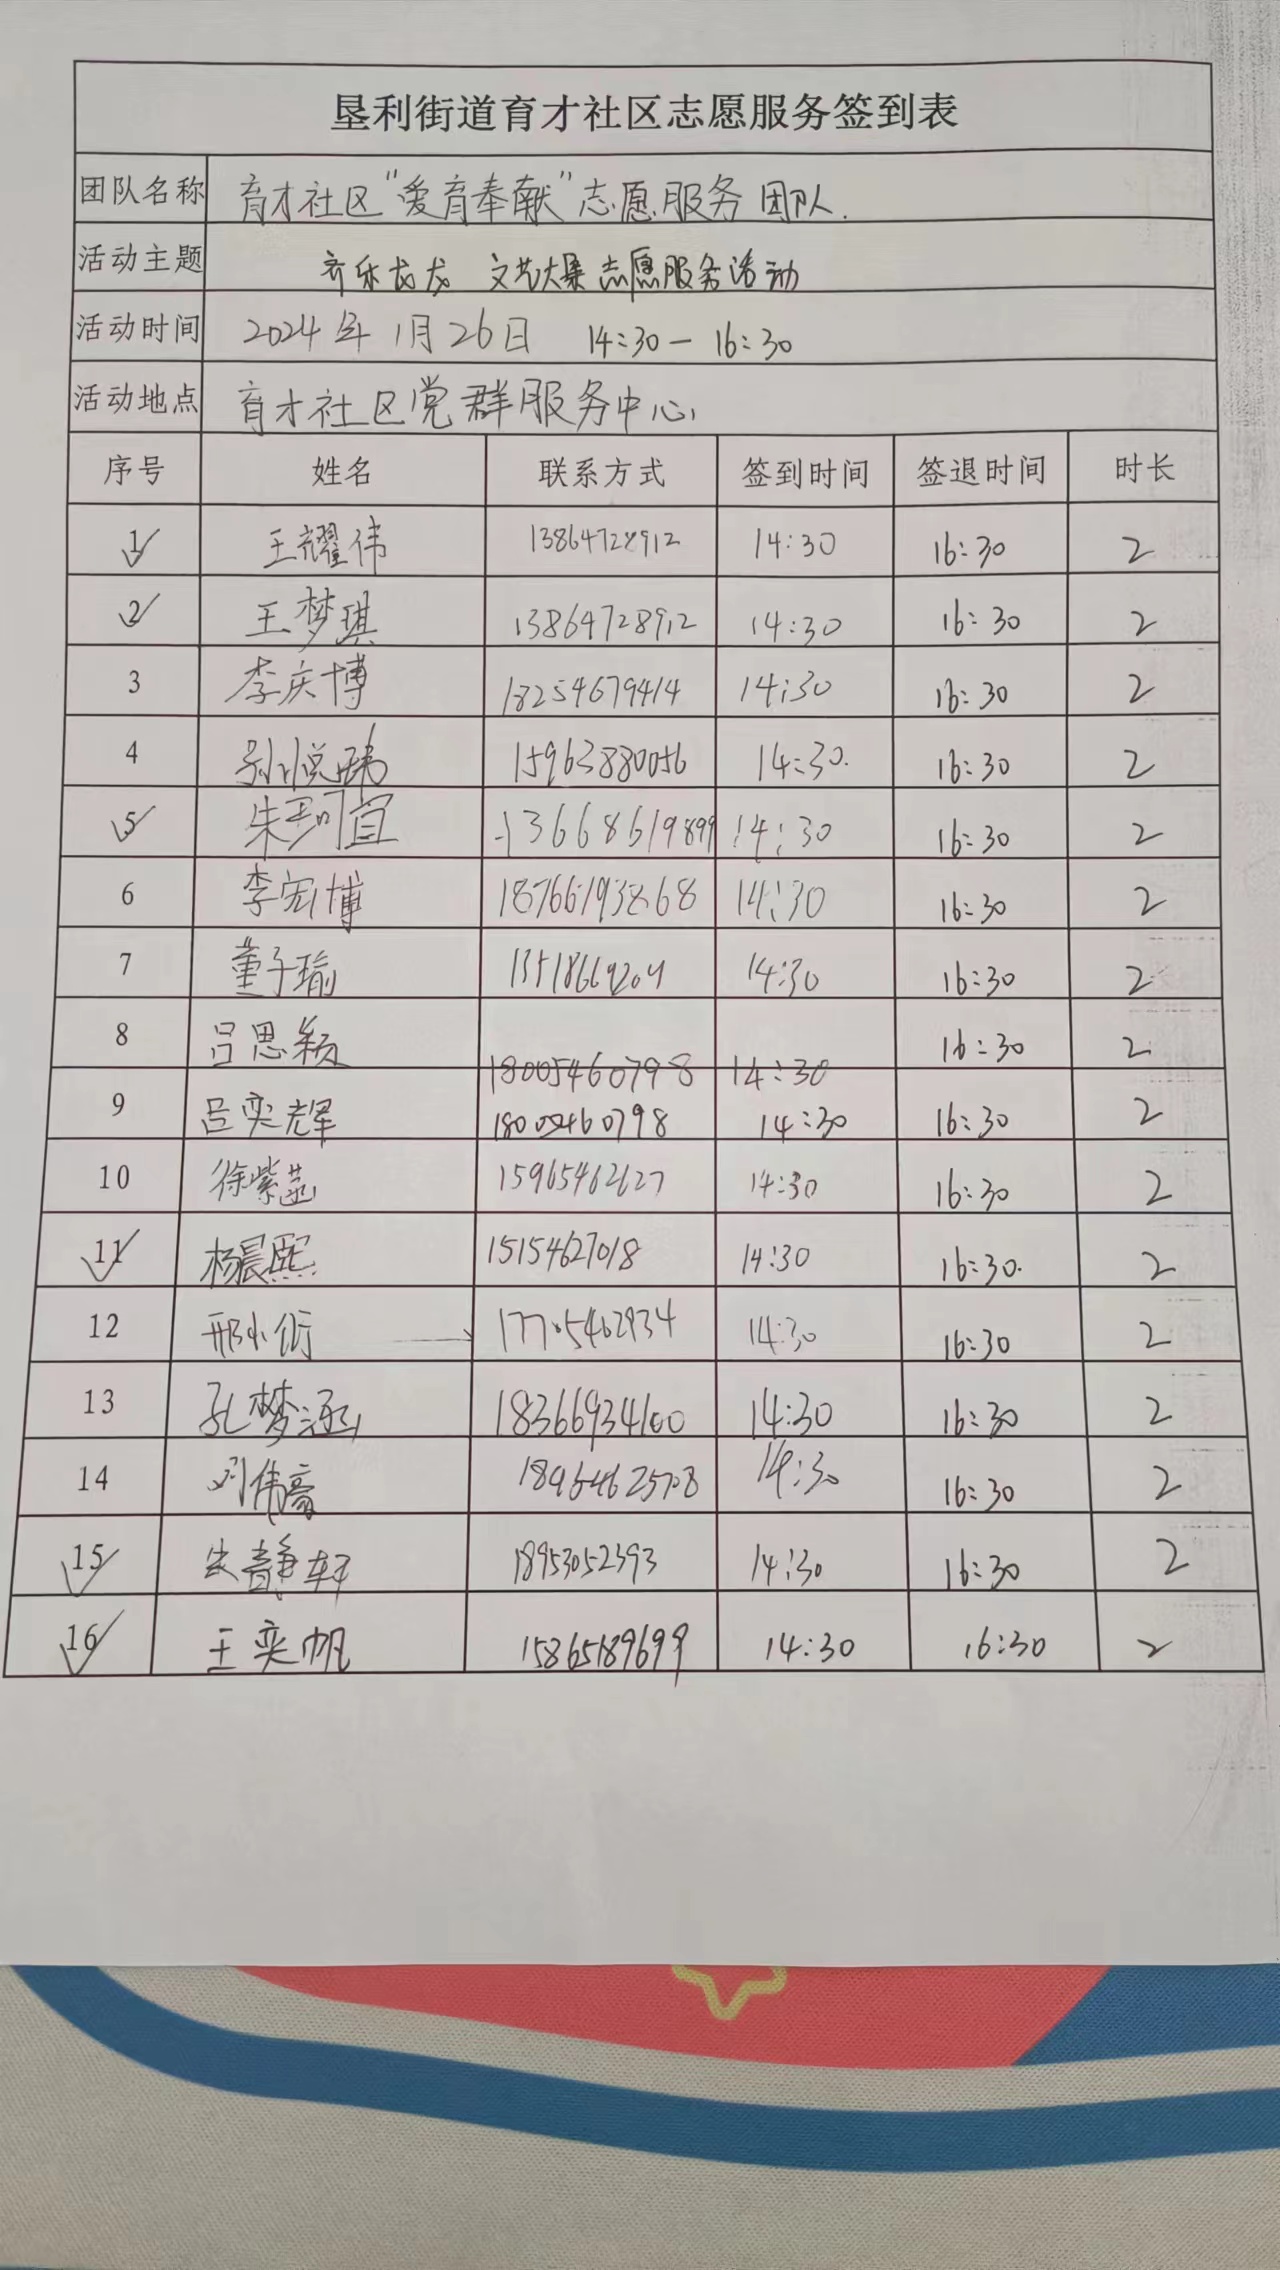 垦利街道育才社区志愿服务签到表
团队名称 育才社区“爱育奉献”志愿服务团队.
活动主题 齐乐龙龙 文艺大集志愿服务活动
活动时间 2024年1月26日 14:30—16:30
活动地点 育才社区党群服务中心
序号 姓名 联系方式 签到时间 签退时间 时长
1 王耀伟 13864728912 14:30 16:30 2
2 王梦琪 13864728912 14:30 16:30 2
3 李庆博 18254679414 14:30 16:30 2
4 孙悦 15963880056 14:30. 16:30 2
5 朱珂宜 13668619899 14:30 16:30 2
6 李宏博 18766193868 14:30 16:30 2
7 董子瑜 13518669204 14:30 16:30 2
8 吕思颖 18005460798 14:30 16:30 2
9 吕奕辉 18005460798 14:30 16:30 2
10 徐紫蕊 15965462627 14:30 16:30 2
11 杨晨熙 15154627018 14:30 16:30. 2
12 邢小衍 17705462934 14:30 16:30 2
13 孔梦涵 18366934100 14:30 16:30 2
14 刘伟豪 18954625708 14:30 16:30 2
15 朱静轩 18953052393 14:30 16:30 2
16 王奕帆 15865189699 14:30 16:30 2